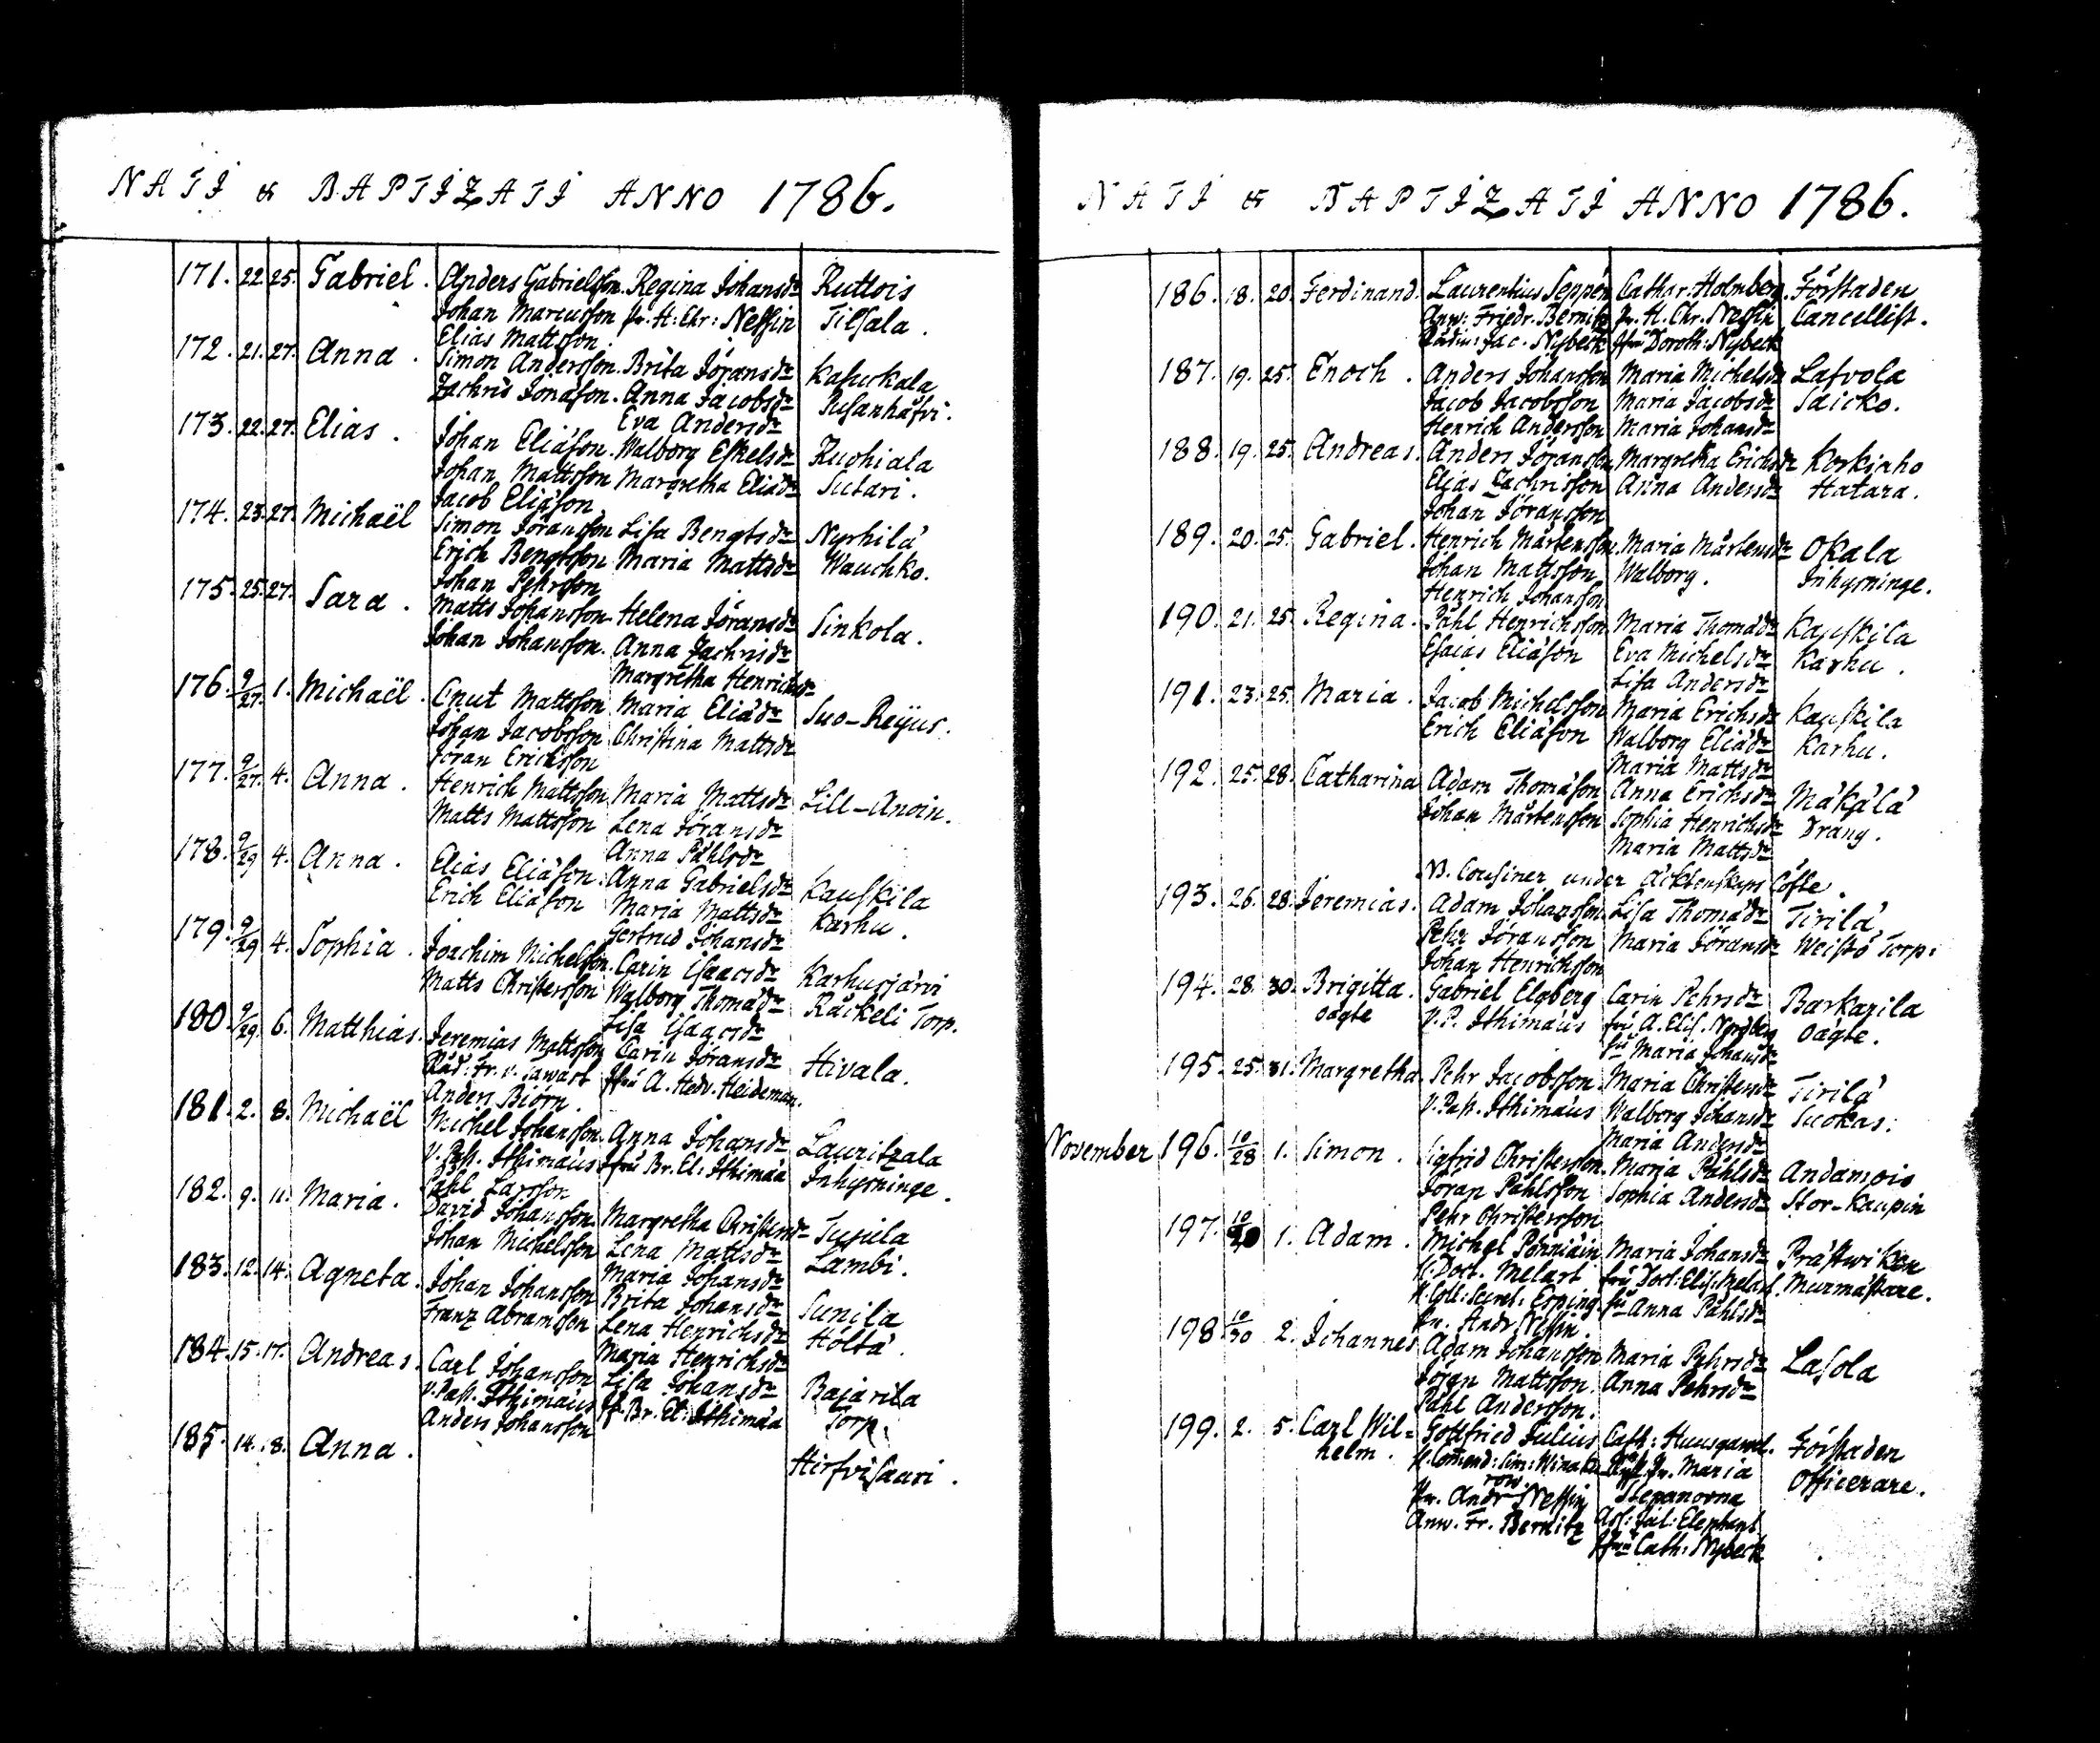 NATI & BAPTIZATI ANNO 1786.
171. 22. 25. Gabriel. Anders Gabrielsson. Regina Johansdr Ruttois
Johan Marcusson fr. H: Chr: Nessin Tilsala.
Elias Mattsson.
172. 21. 27. Anna. Simon Andersson. Brita Jöransdr Kasuckala
Zachris Jonasson. Anna Jacobsdr Susanhåfvi.
Eva Andersdr
173. 22. 27. Elias. Johan Eliäson. Walborg Eskelsdr Ruohiala
Johan Mattsson Margretha Eliädr Sutari.
Jacob Eliäson
174. 23. 27. Michaël Simon Jöransson Lisa Bengtsdr Nyrhilä
Erich Bengtsson Maria Mattsdr Wauchko.
Johan Pehrsson
175. 25. 27. Sara. Matts Johansson. Helena Jöransdr Sinkola.
Johan Johansson. Anna Zachrisdr
Margretha Henrichsdr
176. 9/27. 1. Michaël. Cnut Mattsson Maria Eliädr Suo-Reijus.
Johan Jacobsson Christina Mattsdr
Jöran Erichsson
177. 9/27. 4. Anna. Henrich Mattsson Maria Mattsdr Lill-Anoin.
Matts Mattsson Lena Jöransdr
Anna Påhlsdr
178. 9/29 4. Anna. Elias Eliäson. Anna Gabrielsdr Kauskila
Erich Eliäson Maria Mattsdr Karhu.
Gertrud Johansdr
179. 9/29 4. Sophia. Joachim Michelsson. Carin Isaacsdr Karhusjärvi
Matts Christersson Walborg Thomädr Räckeli Torp.
Lisa Isaacsdr
180. 9/29. 6. Matthias. Jeremias Mattsson Carin Jöransdr Hivala.
Råd: Fr. v. Tawast Jfru A. Hedv. Heideman.
Anders Biörn.
181. 2. 8. Michaël Michel Johansson. Anna Johansdr Lauritzala
V. Past. Ithimäus Jfru Br. El: Ithimäa Inhysninge.
Påhl Larsson
182. 9. 11. Maria. David Johansson. Margretha Christersdr Tujula
Johan Michelsson Lena Mattsdr Lambi.
Maria Johansdr
183. 12. 14. Agneta. Johan Johansson Brita Johansdr Sunila
Franz Abramsson Lena Henrichsdr Höltä.
Maria Henrichsdr
184. 15. 17. Andreas. Carl Johansson Lisa Johansdr Bajarila
V. Past. Ithimäus Jf. Br. El: Ithimäa Torp.
Anders Johansson
185. 14. 18. Anna. Hirfvisaari.
NATI & BAPTIZATI ANNO 1786.
186. 18. 20. Ferdinand. Laurentius Seppén Cathar: Holmberg. Förstaden
Anw: Friedr. Bernitz fr. H. Chr. Nessin Cancellist.
Rådm: Jac. Nybeck Jfru Doroth: Nybeck
187. 19. 25. Enoch. Anders Johansson Maria Michelsdr Lafvola
Jacob Jacobsson Maria Jacobsdr Saicko.
Henrich Andersson Maria Johansdr
188. 19. 25. Andreas. Anders Jöransson Margretha Erichsdr Korkiaho
Elias Zachrisson Anna Andersdr Hatara.
Johan Jöransson
189. 20. 25. Gabriel. Henrich Mårtensson. Maria Mårtensdr Okala
Johan Mattsson Walborg. Inhysninge.
Henrich Johansson
190. 21. 25. Regina. Påhl Henrichsson Maria Thomädr Kauskila
Esaias Eliäson Eva Michelsdr Karhu.
Lisa Andersdr
191. 23. 25. Maria. Jacob Michelsson Maria Erichsdr Kauskila
Erich Eliäson Walborg Eliädr Karhu.
Maria Mattsdr
192. 25. 28. Catharina Adam Thomäson Anna Erichsdr Mäkälä
Johan Mårtensson Sophia Henrichsdr Drang.
Maria Mattsdr
NB. Cousiner under äcktenskaps löfte.
193. 26. 28. Jeremias. Adam Johansson. Lisa Thomädr Tirilä
Pehr Jöransson Maria Jöransdr Weistö Torp.
Johan Henrichsson
194. 28. 30. Brigitta. Gabriel Elgberg Carin Pehrsdr Barkarila
oägte V. P. Ithimäus fru A. Elis. Nordberg oägte.
fru Maria Johansdr
195. 25. 31. Margretha. Pehr Jacobsson. Maria Christersdr Tirilä
V. Past. Ithimäus Walborg Johansdr Suokas.
Maria Andersdr
November 196. 10/28 1. Simon. Sigfrid Christersson. Maria Påhlsdr Andamois
Jöran Påhlsson Sophia Andersdr Stor-Kaupin
Pehr Christersson
197. 10/30 1. Adam. Michel Pörniäin Maria Johansdr Prästwiken
H. Doct. Melart fru Doct: Elis. Melart. Murmästare.
H. Coll: Secret: Esping. fru Anna Påhlsdr
fr. Andr. Nessin.
198 10/30 2. Johannes Adam Johansson Maria Pehrsdr Lasola
Jöran Mattsson. Anna Pehrsdr
Påhl Andersson.
199. 2. 5. Carl Wil= Gottfried Julius Cath: Huusgavel. Förstaden
helm. H. Com̄end: Sim: Wina Fr. Maria Officerare.
row. Stepanovna
fr. Andr Nessin Ass: Jul: Elephant
Anw. Fr. Bernitz Jfru Cath: Nybeck